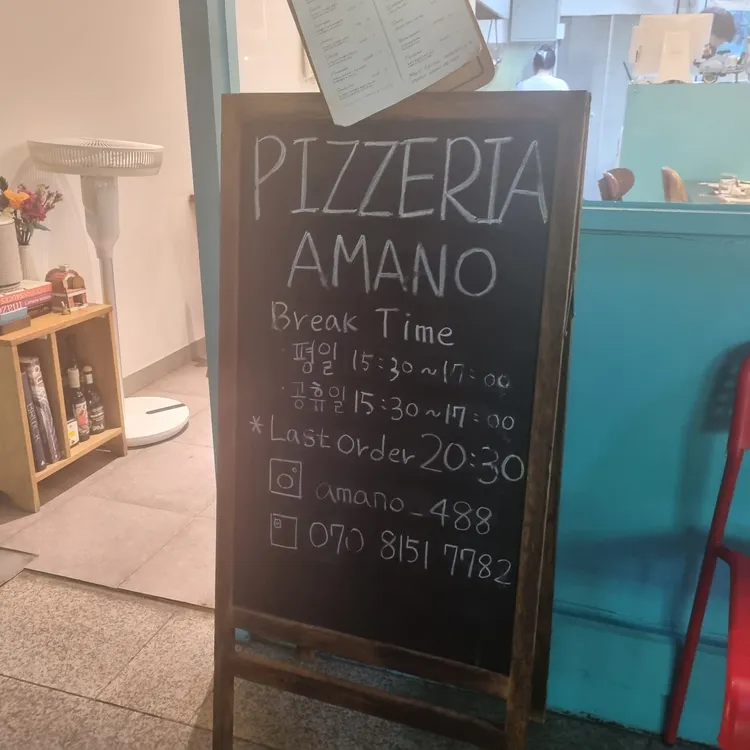 PIZZERIA
AMANO
Break Time
· 평일 15:30~17:00
· 공휴일 15:30~17:00
* Last order 20:30
amano_488
070 8151 7782